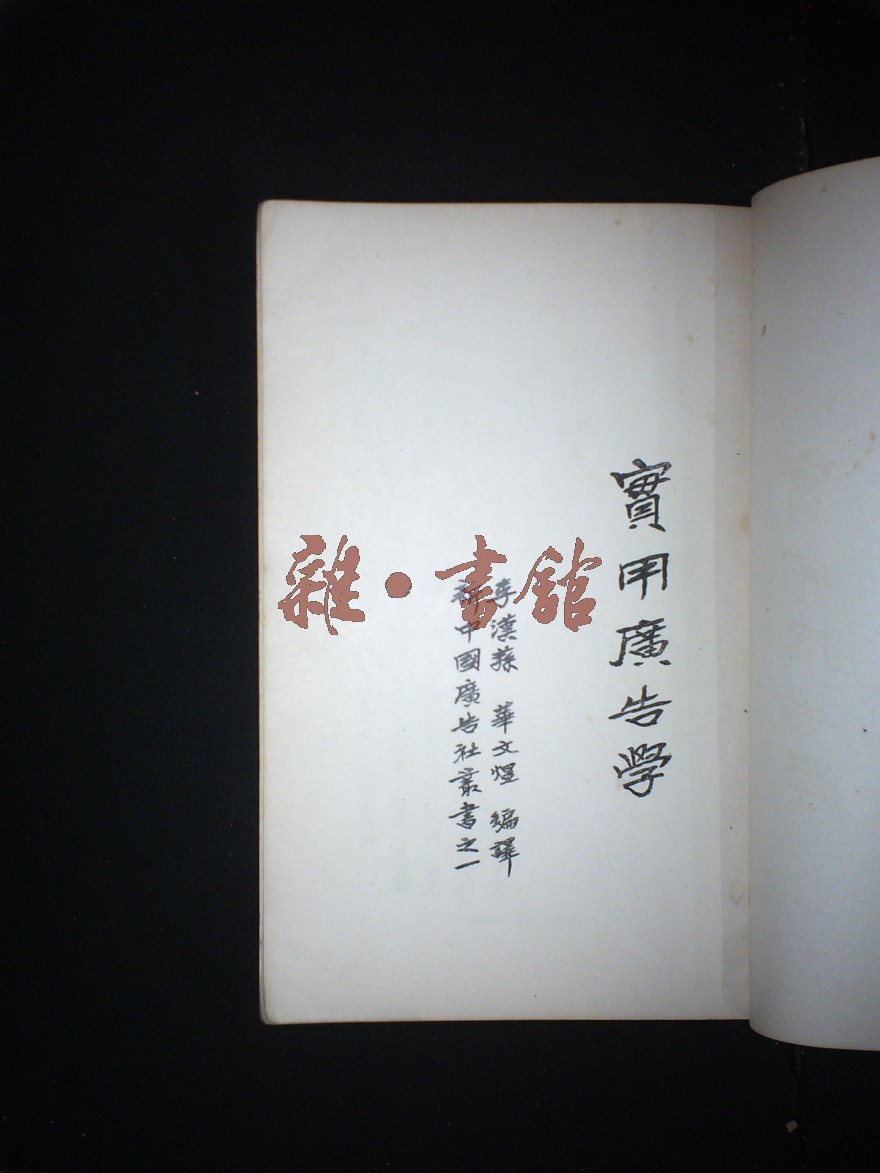 實用廣告學
李漢蓀 華文煜 編譯
新中國廣告社叢書之一
雜·書館